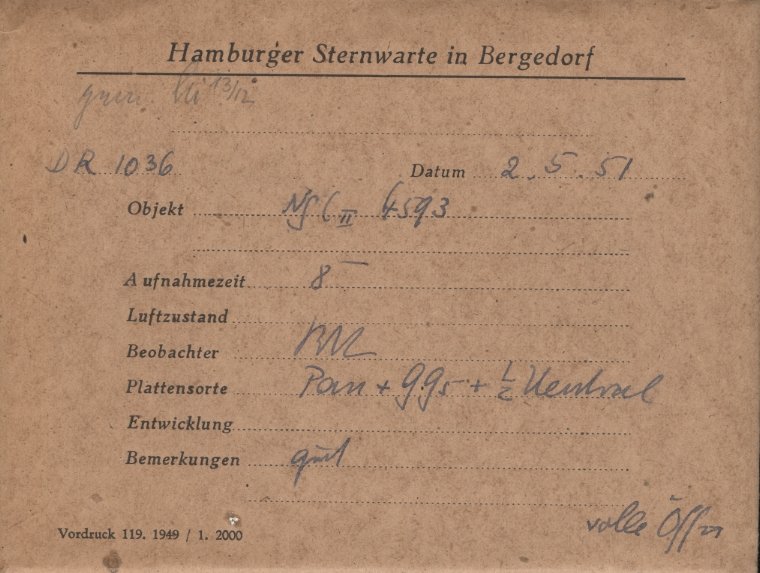 Hamburger Sternwarte in Bergedorf
13/12
DR 1036 Datum 2.5.51
Objekt NGC II 4593
Aufnahmezeit 8
Luftzustand
Beobachter
Plattensorte Pan + GG5 + ½ Neutral
Entwicklung
Bemerkungen gut
volle Öffn
Vordruck 119. 1949 / 1. 2000